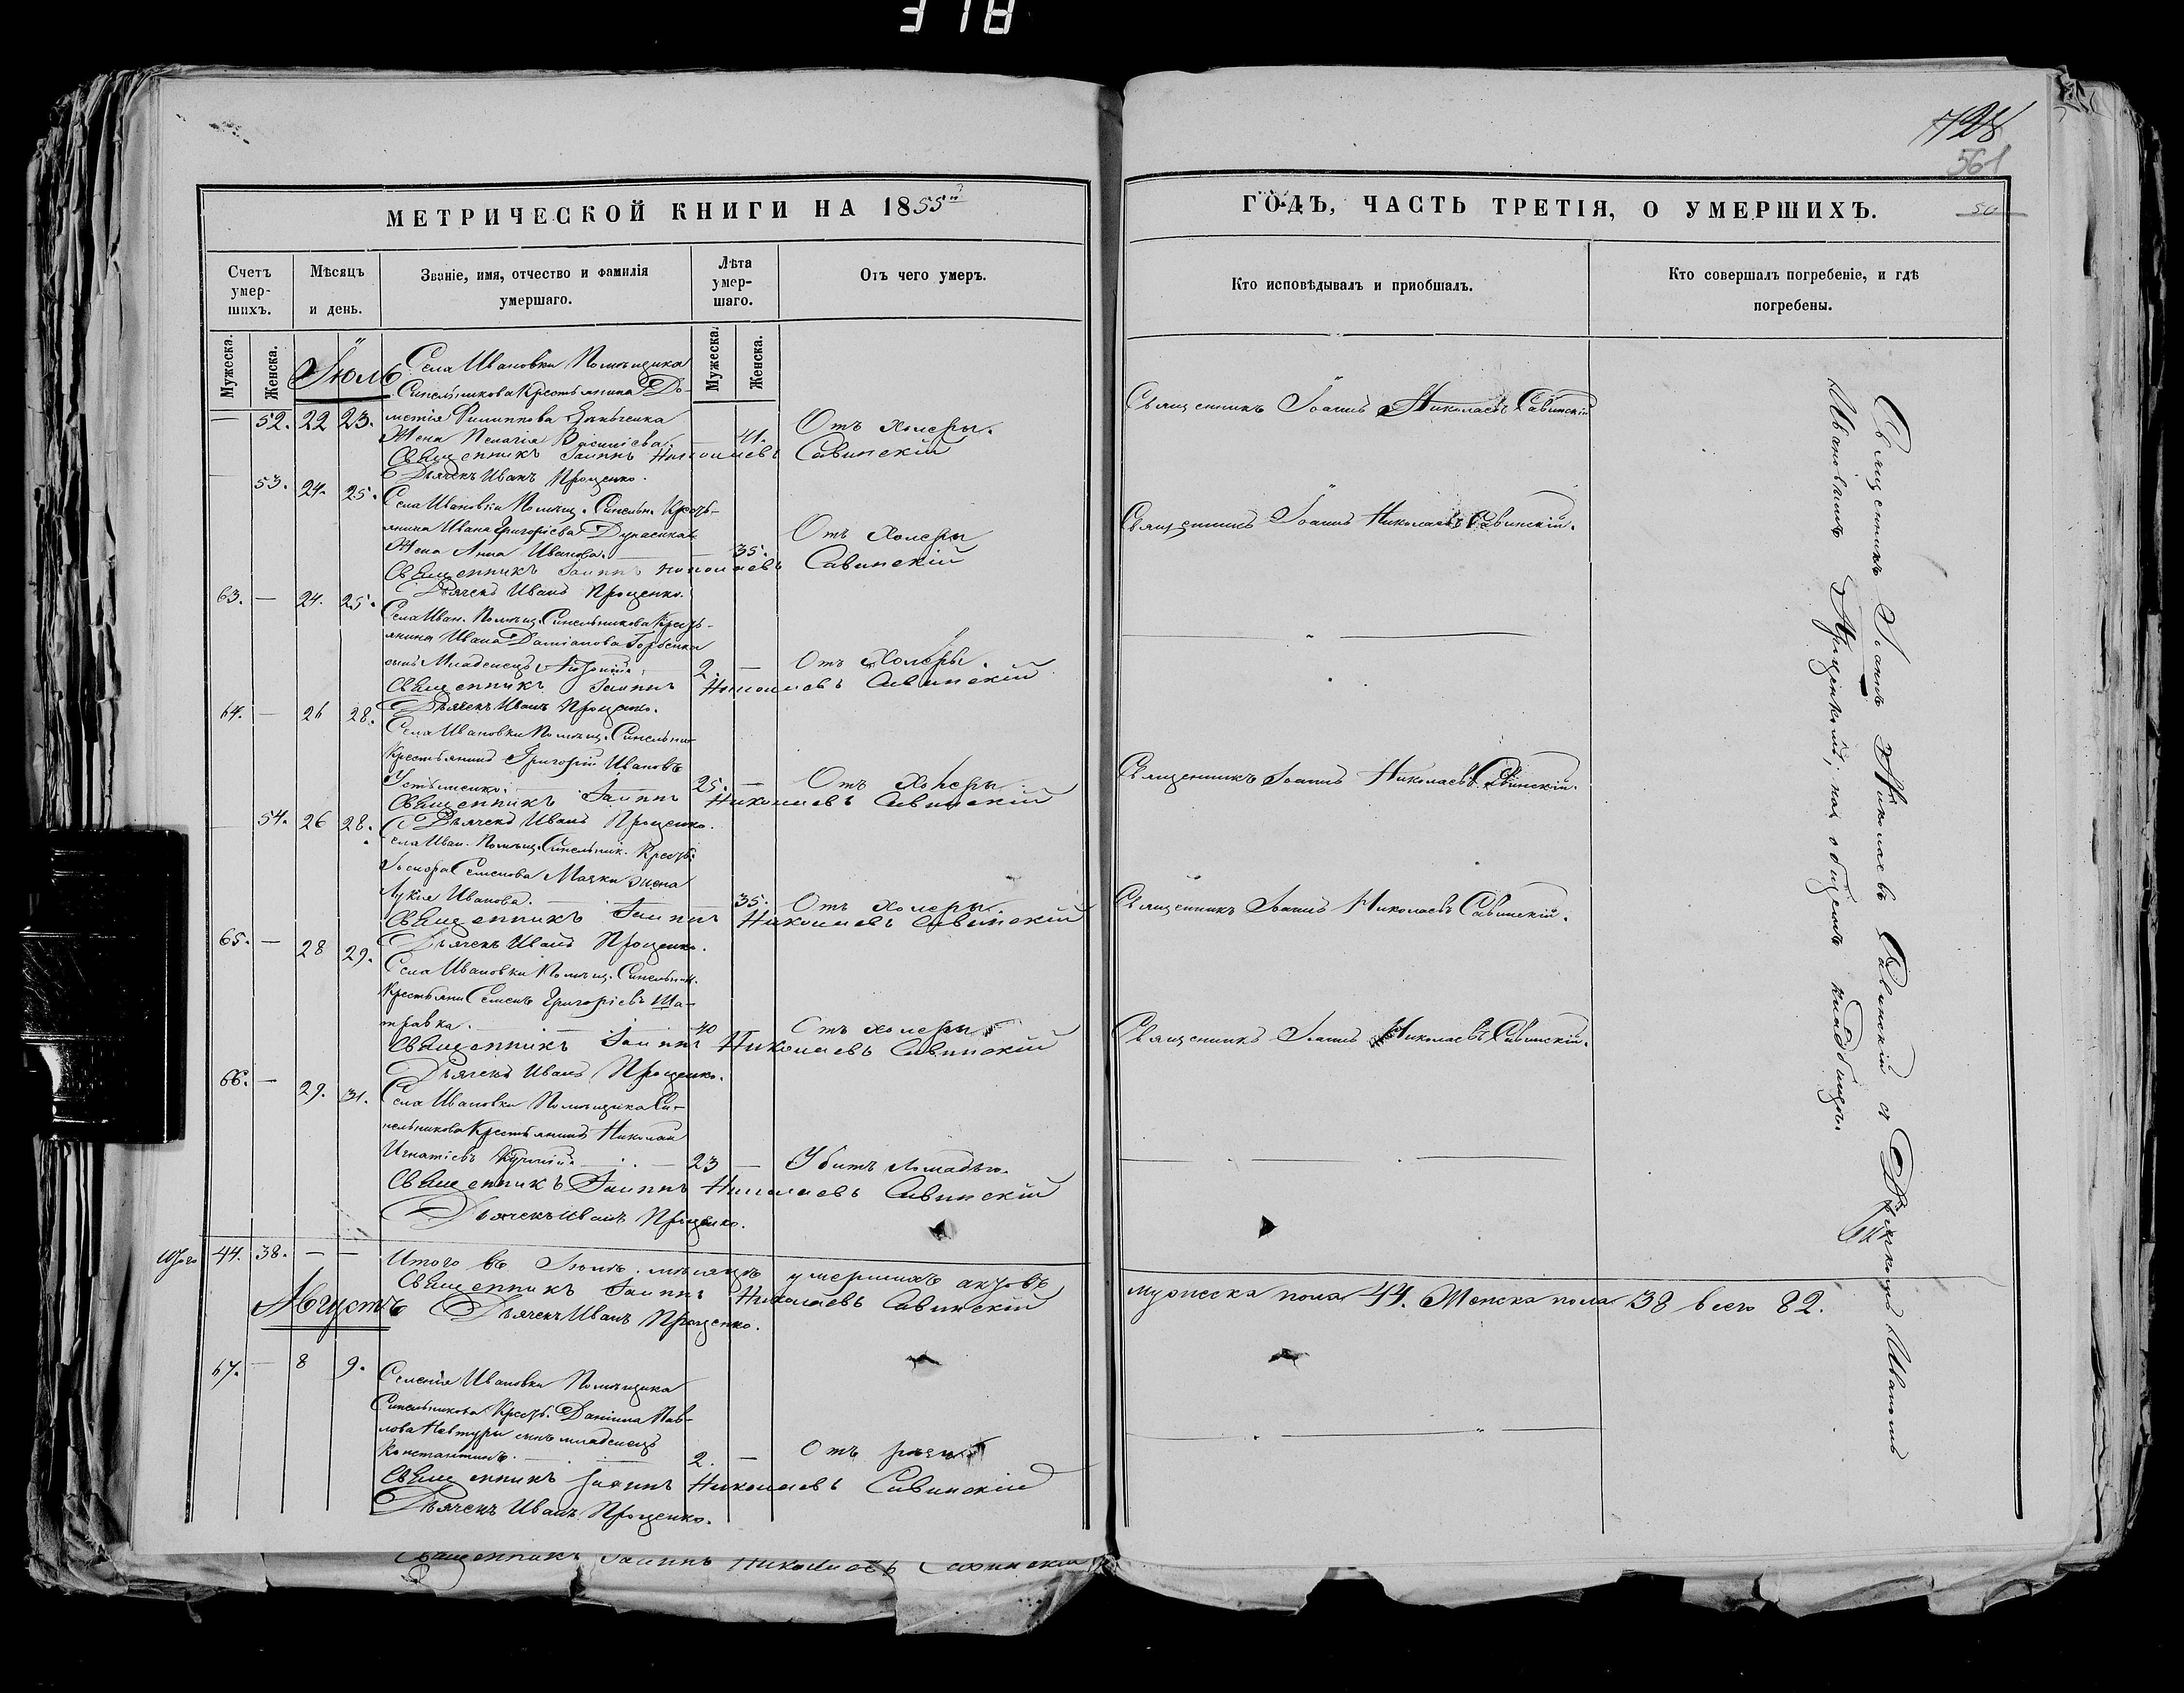 318
728
561
МЕТРИЧЕСКОЙ КНИГИ НА 1855й
ГОДЪ, ЧАСТЬ ТРЕТІЯ, О УМЕРШИХЪ.
Счетъ умер-
шихъ.
Мѣсяцъ
и день.
Званіе, имя, отчество и фамилія
умершаго.
Лѣта
умер-
шаго.
Отъ чего умеръ.
Кто исповѣдывалъ и пріобщалъ.
Кто совершалъ погребеніе, и гдѣ
погребены.
Мужеска.
Женска.
Мужеска.
Женска.
Іюль
Села Ивановки Помѣщика
Синельникова Крестьянина До-
— 52. 22 23. метія Филиппова
Жена Пелагія Василіева. — 41. Отъ холеры.
Священникъ Іоаннъ Николаевъ Савинскій
Священникъ Іоаннъ Николаевъ Савинскій
Дьячекъ Иванъ Проценко.
53. 24. 25. Села Ивановки Помѣщ. Синельн. Кресть-
янина Ивана Григоріева
Жена Анна Иванова. — 35. Отъ холеры
Священникъ Іоаннъ Николаевъ Савинскій.
Священникъ Іоаннъ Николаевъ Савинскій
Дьячекъ Иванъ Проценко.
63. — 24. 25. Села Иван. Помѣщ. Синельникова Кресть-
янина Ивана Даміанова Горбенка
сынъ Младенецъ 2. — Отъ холеры.
Священникъ Іоаннъ Николаевъ Савинскій
Дьячекъ Иванъ Проценко.
64. — 26 28. Села Ивановки Помѣщ. Синельни-
Крестьянинъ Григорій Ивановъ
Устименко. 25. — Отъ холеры
Священникъ Іоаннъ Николаевъ Савинскій.
Священникъ Іоаннъ Николаевъ Савинскій
Дьячекъ Иванъ Проценко.
— 54. 26 28. Села Иван. Помѣщ. Синельник. Кресть.
Семенова Маяки жена
Лукія Иванова. — 35. Отъ холеры
Священникъ Іоаннъ Николаевъ Савинскій.
Священникъ Іоаннъ Николаевъ Савинскій
Дьячекъ Иванъ Проценко.
65. — 28 29. Села Ивановки Помѣщ. Синельник.
Крестьянин Семенъ Григоріевъ Ша-
травка. 40 Отъ холеры
Священникъ Іоаннъ Николаевъ Савинскій.
Священникъ Іоаннъ Николаевъ Савинскій
Дьячекъ Иванъ Проценко.
66. — 29. 31. Села Ивановки Помѣщика Си-
нельникова Крестьянинъ Николай
Игнатіевъ 23 — Убитъ лошадью.
Священникъ Іоаннъ Николаевъ Савинскій
Дьячекъ Иванъ Проценко.
Итого 44. 38. — — Итого въ Іюлѣ мѣсяцѣ умершихъ актовъ
мужеска пола 44. Женска пола 38 всего 82.
Священникъ Іоаннъ Николаевъ Савинскій
Августъ Дьячекъ Иванъ Проценко.
67. — 8 9. Селенія Ивановки Помѣщика
Синельникова Кресть. Даніила Пав-
лова сынъ младенецъ
Константинъ. 2. — Отъ
Священникъ Іоаннъ Николаевъ Савинскій
Дьячекъ Иванъ Проценко.
Священникъ Іоаннъ Николаевъ Савинскій
Священникъ Іоаннъ Николаевъ Савинскій съ Дьячкомъ Иваномъ
Ивановымъ Проценкомъ, на общемъ кладбищѣ.